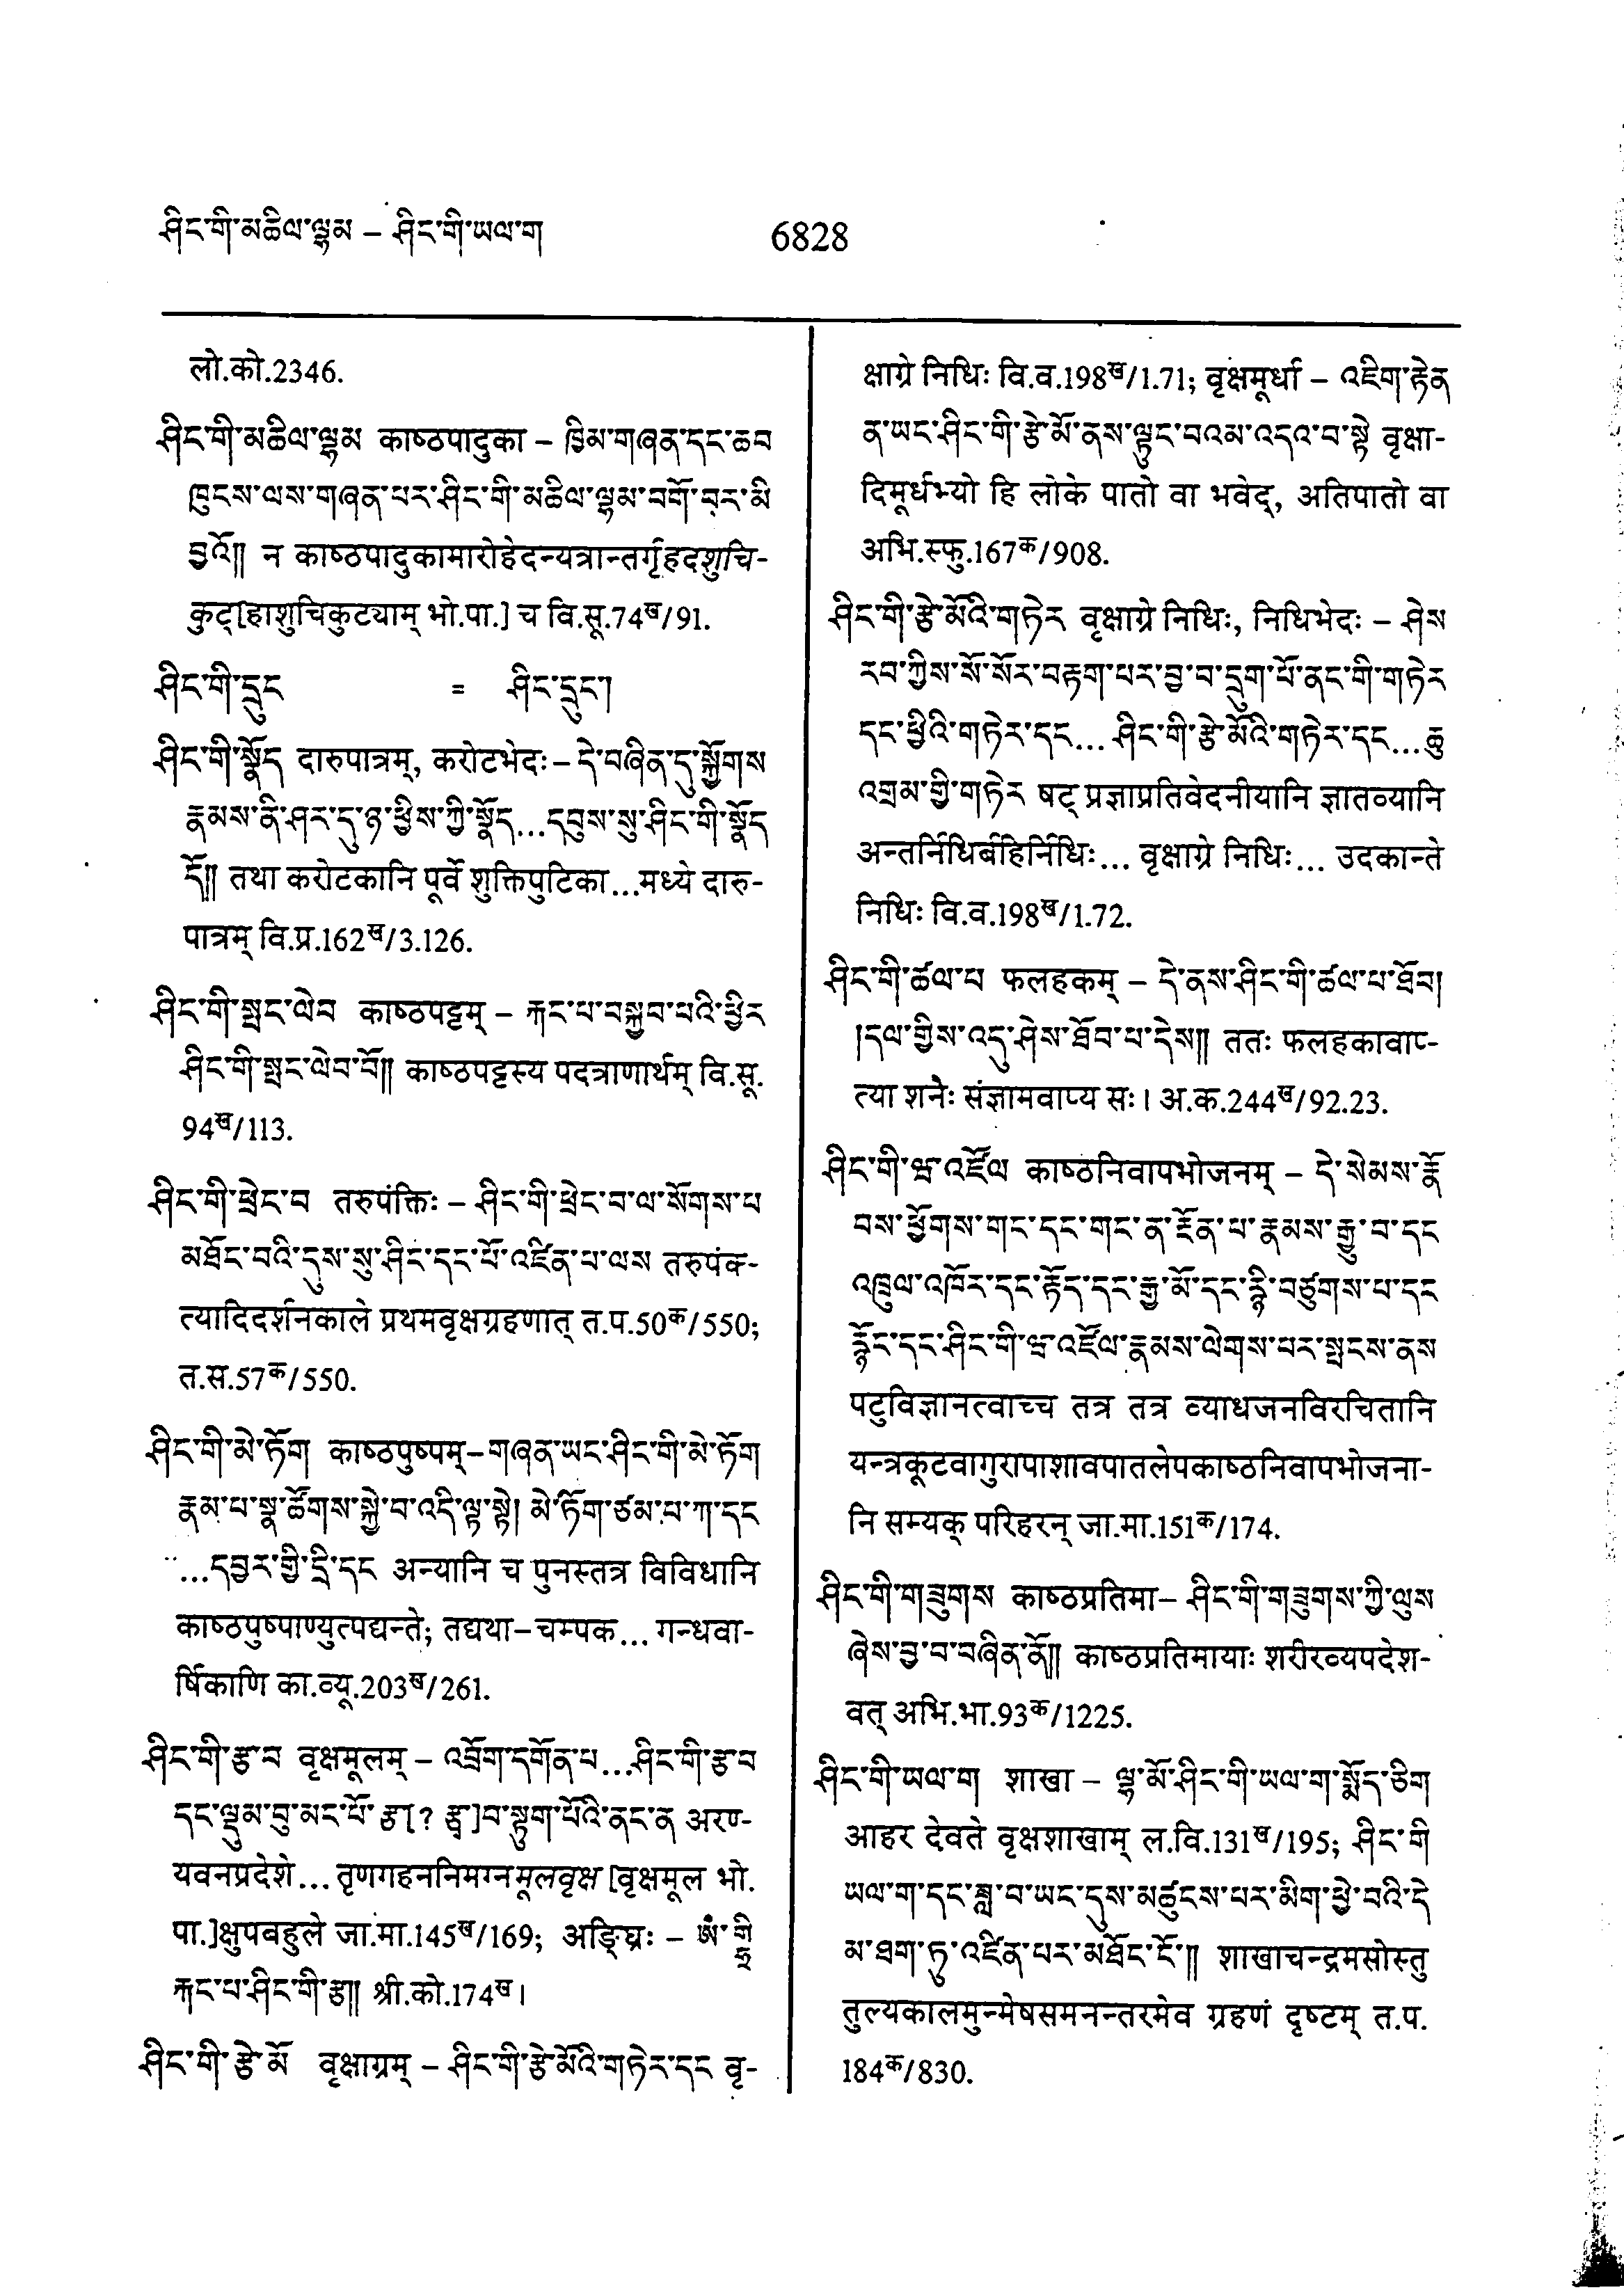 ཤིང་གི་མཆིལ་ལྷམ – ཤིང་གི་ཡལ་ག
6828
लो.को.2346.
ཤིང་གི་མཆིལ་ལྷམ काष्ठपादुका – ཁྱིམ་གཞན་དང་ཆབ
ཁུངས་ལས་གཞན་པར་ཤིང་གི་མཆིལ་ལྷམ་བགོ་བར་མི
བྱའོ།། न काष्ठपादुकामारोहेदन्यत्रान्तर्गृहदशुचि-
कुट्[हाशुचिकुट्याम् भो.पा.] च वि.सू.74ख/91.
ཤིང་གི་དྲུང = ཤིང་དྲུང་།
ཤིང་གི་སྣོད दारुपात्रम्, करोटभेदः – དེ་བཞིན་དུ་སྐྱོགས
རྣམས་ནི་ཤར་དུ་ཉ་ཕྱིས་ཀྱི་སྣོད...དབུས་སུ་ཤིང་གི་སྣོད
དོ།། तथा करोटकानि पूर्वे शुक्तिपुटिका...मध्ये दारु-
पात्रम् वि.प्र.162ख/3.126.
ཤིང་གི་སྤང་ལེབ काष्ठपट्टम् – རྐང་པ་བསྐྱབ་པའི་ཕྱིར
ཤིང་གི་སྤང་ལེབ་བོ།། काष्ठपट्टस्य पदत्राणार्थम् वि.सू.
94ख/113.
ཤིང་གི་ཕྲེང་བ तरुपंक्तिः – ཤིང་གི་ཕྲེང་བ་ལ་སོགས་པ
མཐོང་བའི་དུས་སུ་ཤིང་དང་པོ་འཛིན་པ་ལས तरुपंक-
त्यादिदर्शनकाले प्रथमवृक्षग्रहणात् त.प.50क/550;
त.स.57क/550.
ཤིང་གི་མེ་ཏོག काष्ठपुष्पम्–གཞན་ཡང་ཤིང་གི་མེ་ཏོག
རྣམ་པ་སྣ་ཚོགས་སྐྱེ་བ་འདི་ལྟ་སྟེ། མེ་ཏོག་ཙམ་པ་ཀ་དང
...དབྱར་གྱི་དྲི་དང अन्यानि च पुनस्तत्र विविधानि
काष्ठपुष्पाण्युत्पद्यन्ते; तद्यथा–चम्पक... गन्धवा-
र्षिकाणि का.व्यू.203ख/261.
ཤིང་གི་རྩ་བ वृक्षमूलम् – འབྲོག་དགོན་པ...ཤིང་གི་རྩ་བ
དང་ལྡུམ་བུ་མང་པོ་རྩ[? རྩྭ]བ་སྟུག་པོའི་ནང་ན अरण-
यवनप्रदेशे... तृणगहननिमग्नमूलवृक्ष [वृक्षमूल भो.
पा.]क्षुपबहुले जा.मा.145ख/169; अङ्घ्रिः – ཨཾ་གྷྲི
རྐང་པ་ཤིང་གི་རྩ།། श्री.को.174ख।
ཤིང་གི་རྩེ་མོ वृक्षाग्रम् – ཤིང་གི་རྩེ་མོའི་གཏེར་དང वृ-
क्षाग्रे निधिः वि.व.198ख/1.71; वृक्षमूर्धा – འཇིག་རྟེན
ན་ཡང་ཤིང་གི་རྩེ་མོ་ནས་ལྟུང་བའམ་འདའ་བ་སྟེ वृक्षा-
दिमूर्धभ्यो हि लोके पातो वा भवेद्, अतिपातो वा
अभि.स्फु.167क/908.
ཤིང་གི་རྩེ་མོའི་གཏེར वृक्षाग्रे निधिः, निधिभेदः – ཤེས
རབ་ཀྱིས་སོ་སོར་བརྟག་པར་བྱ་བ་དྲུག་པོ་ནང་གི་གཏེར
དང་ཕྱིའི་གཏེར་དང... ཤིང་གི་རྩེ་མོའི་གཏེར་དང...ཆུ
འགྲམ་གྱི་གཏེར षट् प्रज्ञाप्रतिवेदनीयानि ज्ञातव्यानि
अन्तर्निधिर्बहिर्निधिः... वृक्षाग्रे निधिः... उदकान्ते
निधिः वि.व.198ख/1.72.
ཤིང་གི་ཚལ་པ फलहकम् – དེ་ནས་ཤིང་གི་ཚལ་པ་ཐོབ།
།དལ་གྱིས་འདུ་ཤེས་ཐོབ་པ་དེས།། ततः फलहकावाप-
त्या शनैः संज्ञामवाप्य सः। अ.क.244ख/92.23.
ཤིང་གི་ཝ་འཛོལ काष्ठनिवापभोजनम् – དེ་སེམས་རྣོ
བས་ཕྱོགས་གང་དང་གང་ན་རྔོན་པ་རྣམས་རྒྱུ་བ་དང
འཁྲུལ་འཁོར་དང་རྟོད་དང་རྒྱ་མོ་དང་རྙི་བཙུགས་པ་དང
རྙོང་དང་ཤིང་གི་ཝ་འཛོལ་རྣམས་ལེགས་པར་སྤངས་ནས
पटुविज्ञानत्वाच्च तत्र तत्र व्याधजनविरचितानि
यन्त्रकूटवागुरापाशावपातलेपकाष्ठनिवापभोजना-
नि सम्यक् परिहरन् जा.मा.151क/174.
ཤིང་གི་གཟུགས काष्ठप्रतिमा– ཤིང་གི་གཟུགས་ཀྱི་ལུས
ཞེས་བྱ་བ་བཞིན་ནོ།། काष्ठप्रतिमायाः शरीरव्यपदेश-
वत् अभि.भा.93क/1225.
ཤིང་གི་ཡལ་ག शाखा – ལྷ་མོ་ཤིང་གི་ཡལ་ག་སྨོད་ཅིག
आहर देवते वृक्षशाखाम् ल.वि.131ख/195; ཤིང་གི
ཡལ་ག་དང་ཟླ་བ་ཡང་དུས་མཚུངས་པར་མིག་ཕྱེ་བའི་དེ
མ་ཐག་ཏུ་འཛིན་པར་མཐོང་ངོ་།། शाखाचन्द्रमसोस्तु
तुल्यकालमुन्मेषसमनन्तरमेव ग्रहणं दृष्टम् त.प.
184क/830.